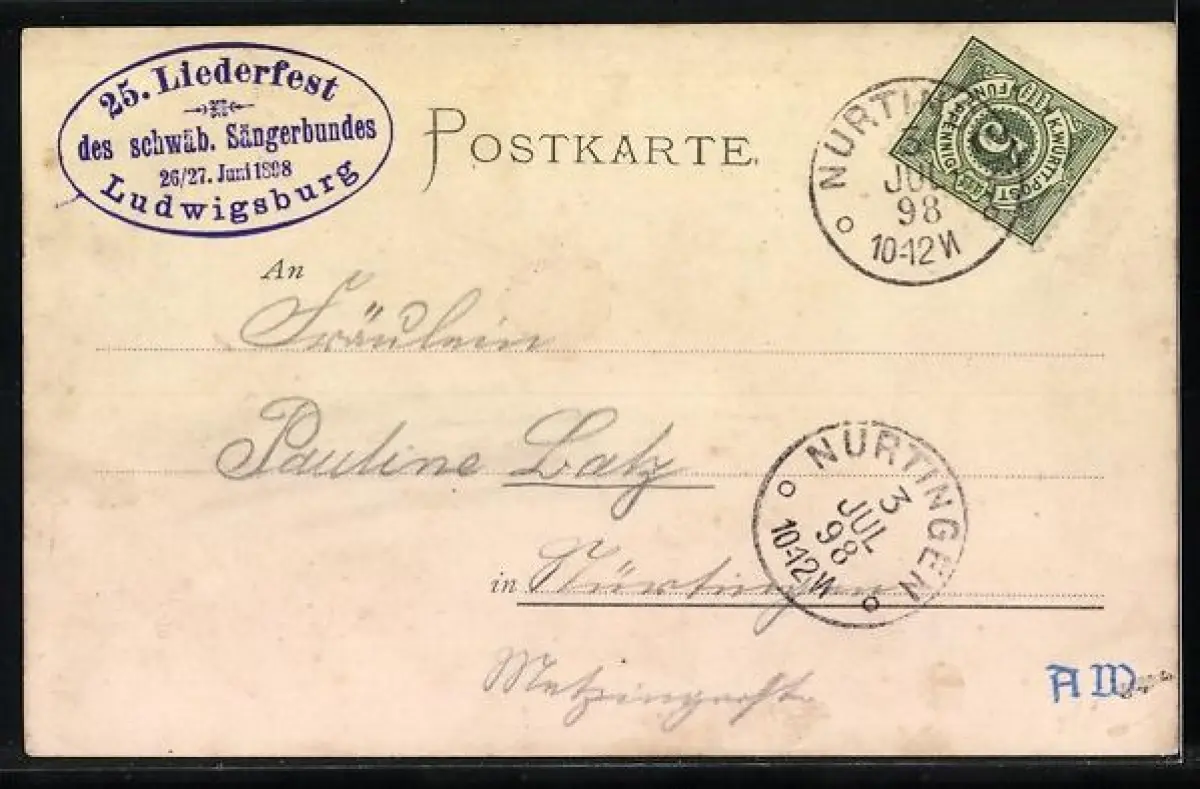 25. Liederfest
des schwäb. Sängerbundes
26/27. Juni 1898
Ludwigsburg
POSTKARTE.
NURTIN
JUL
98
10-12 V
K. WÜRTT. POST
FÜNF PFENNIG
5
An
Fräulein
Pauline Batz
in Nürtingen
NURTINGEN
3
JUL
98
10-12 V
Metzingerstr.
AW